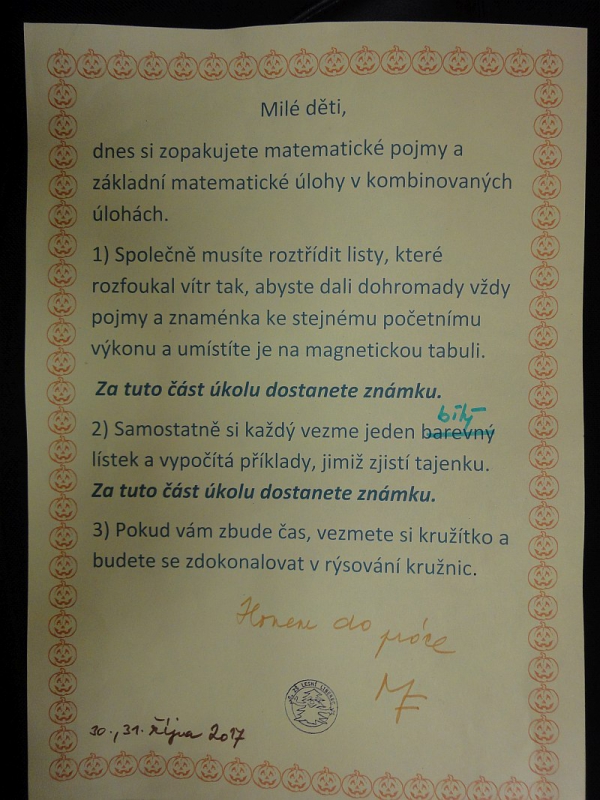 Milé děti,
dnes si zopakujete matematické pojmy a
základní matematické úlohy v kombinovaných
úlohách.
1) Společně musíte roztřídit listy, které
rozfoukal vítr tak, abyste dali dohromady vždy
pojmy a znaménka ke stejnému početnímu
výkonu a umístíte je na magnetickou tabuli.
Za tuto část úkolu dostanete známku.
bílý
2) Samostatně si každý vezme jeden barevný
lístek a vypočítá příklady, jimiž zjistí tajenku.
Za tuto část úkolu dostanete známku.
3) Pokud vám zbude čas, vezmete si kružítko a
budete se zdokonalovat v rýsování kružnic.
Honem do práce
MF
30., 31. října 2017